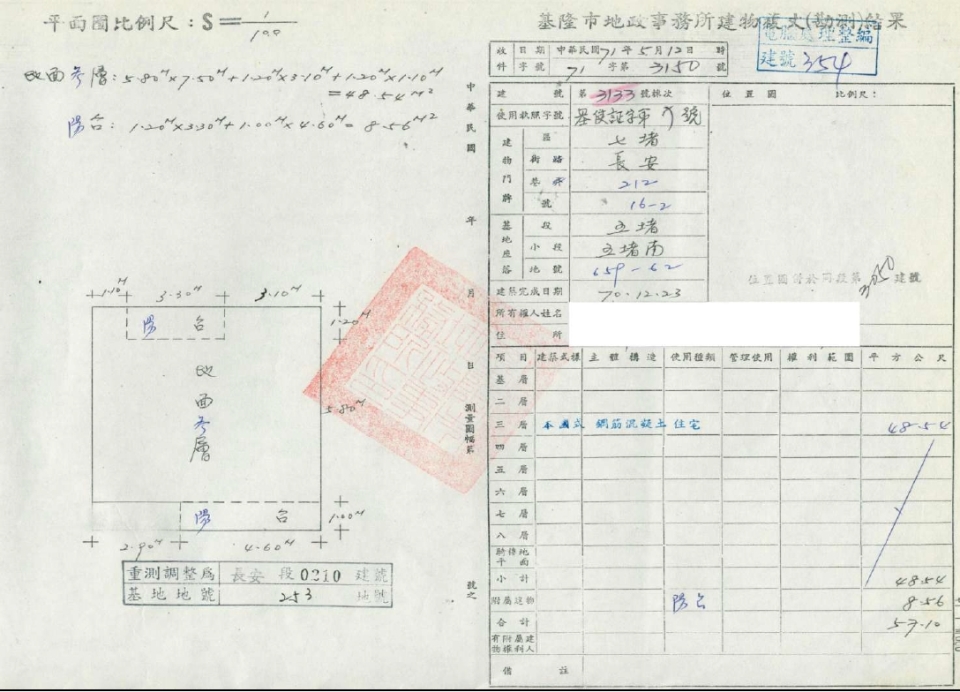 平面圖比例尺：S＝1/100
地面叁層：5.80M×7.50M+1.20M×3.10M+1.20M×1.10M
=48.54M2
陽台：1.20M×3.30M+1.00M×4.60M=8.56M2
1.10M 3.30M 3.10M
陽台
1.20M
地面叁層
5.80M
陽台
1.00M
2.90M 4.60M
重測調整為 長安 段0210 建號
基地地號 253 地號
中華民國 年 月 日 測量圖幅第 號之
基隆市地政事務所建物 丈(勘測)結果
電腦處理整編
建號 354
收件 日期 中華民國71年5月12日 時
字號 71 字第 3150 號
建號 第3133號棟次
位置圖 比例尺：
使用執照字號 基使証字第 號
建物門牌 區 七堵
街路 長安
巷弄 212
號 16-2
基地座落 段 五堵
小段 五堵南
地號 659-62
位置圖浴於同段第3050建號
建築完成日期 70.12.23
所有權人姓名
住所
項目 建築式樣 主體構造 使用種類 管理使用 權利範圍 平方公尺
基層
二層
三層 本國式 鋼筋混凝土 住宅 48.54
四層
五層
六層
七層
八層
騎樓地平面
小計 48.54
附屬建物 陽台 8.56
合計 57.10
有附屬建物權利人
備註